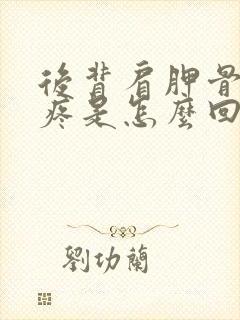 後背肩胛骨
疼是怎麼回
劉功蘭